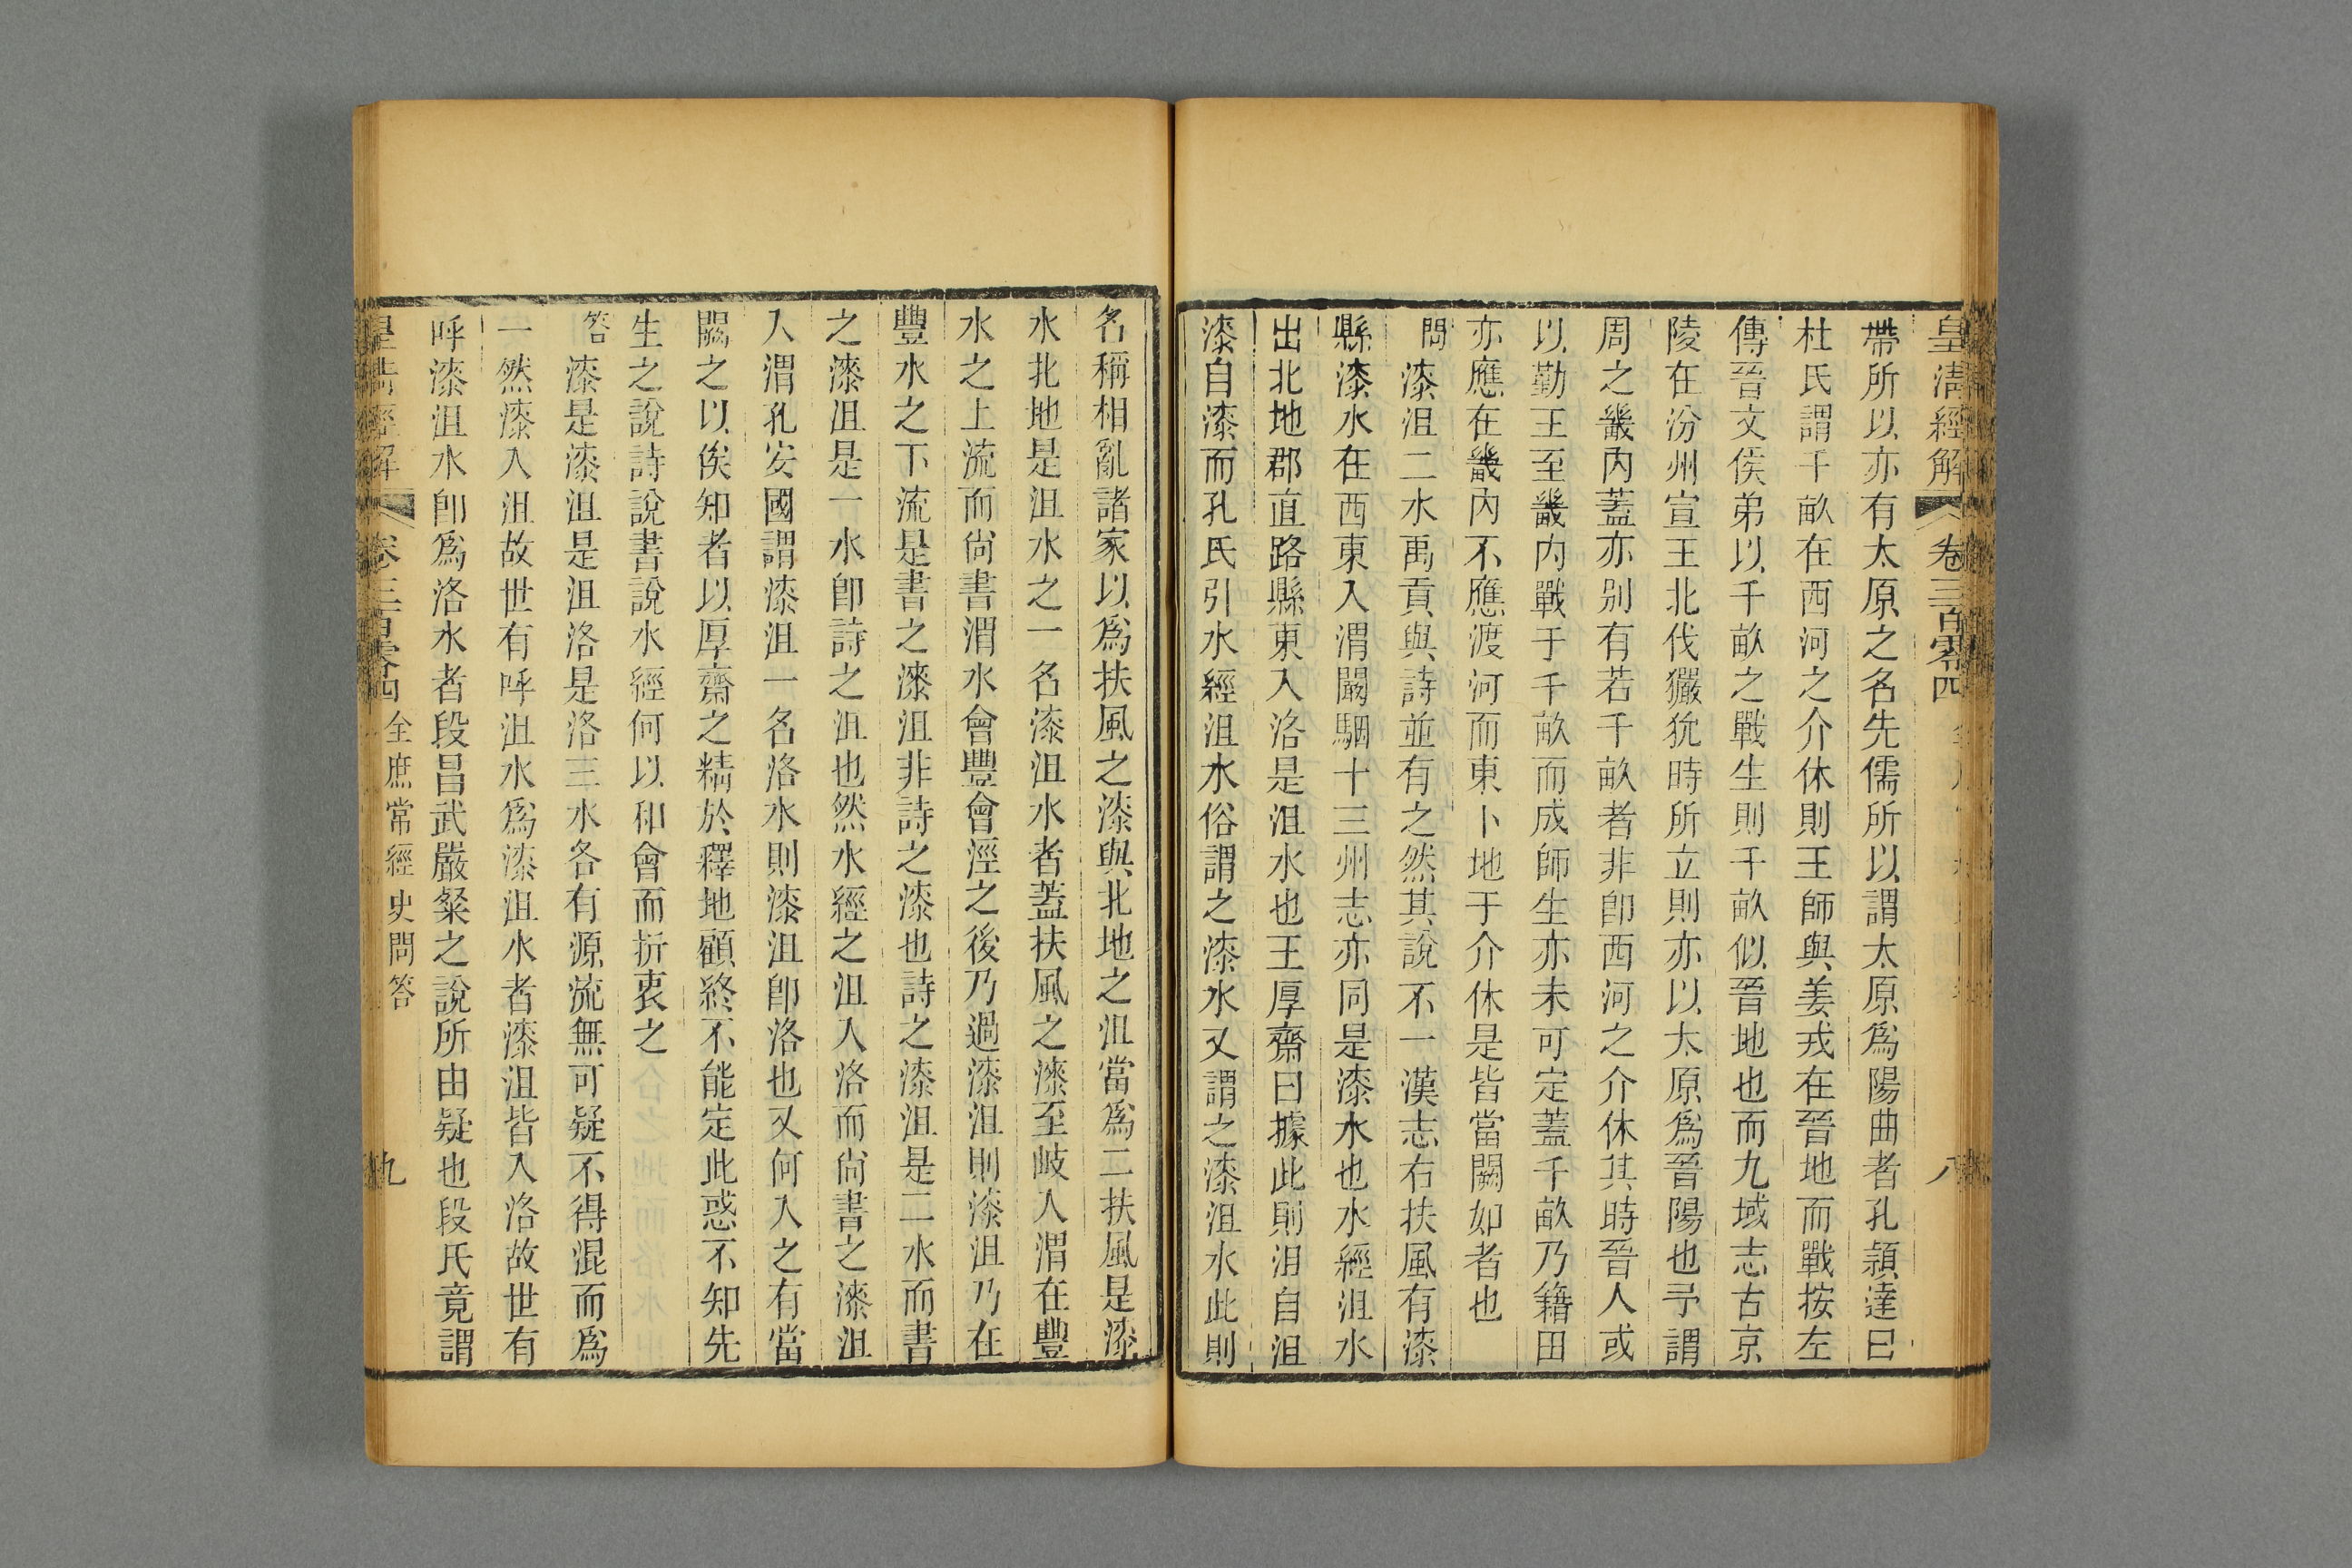 皇清經解 卷三百零四 八
帶所以亦有太原之名先儒所以謂太原爲陽曲者孔潁達曰
杜氏謂千畝在西河之介休則王師與姜戎在晉地而戰按左
傳晉文侯弟以千畝之戰生則千畝似晉地也而九域志古京
陵在汾州宣王北伐玁狁時所立則亦以太原爲晉陽也予謂
周之畿內蓋亦別有若千畝者非卽西河之介休其時晉人或
以勤王至畿內戰于千畝而成師生亦未可定蓋千畝乃籍田
亦應在畿內不應渡河而東卜地于介休是皆當闕如者也
問漆沮二水禹貢與詩並有之然其說不一漢志右扶風有漆
縣漆水在西東入渭闞駰十三州志亦同是漆水也水經沮水
出北地郡直路縣東入洛是沮水也王厚齋曰據此則沮自沮
漆自漆而孔氏引水經沮水俗謂之漆水又謂之漆沮水此則
名稱相亂諸家以爲扶風之漆與北地之沮當爲二扶風是漆
水北地是沮水之一名漆沮水者蓋扶風之漆至岐入渭在豐
水之上流而尙書渭水會豐會涇之後乃過漆沮則漆沮乃在
豐水之下流是書之漆沮非詩之漆也詩之漆沮是二水而書
之漆沮是一水卽詩之沮也然水經之沮入洛而尙書之漆沮
入渭孔安國謂漆沮一名洛水則漆沮卽洛也又何入之有當
闕之以俟知者以厚齋之精於釋地顧終不能定此惑不知先
生之說詩說書說水經何以和會而折衷之
答漆是漆沮是沮洛是洛三水各有源流無可疑不得混而爲
一然漆入沮故世有呼沮水爲漆沮水者漆沮皆入洛故世有
呼漆沮水卽爲洛水者段昌武嚴粲之說所由疑也段氏竟謂
皇清經解 卷三百零四 全庶常經史問答 九